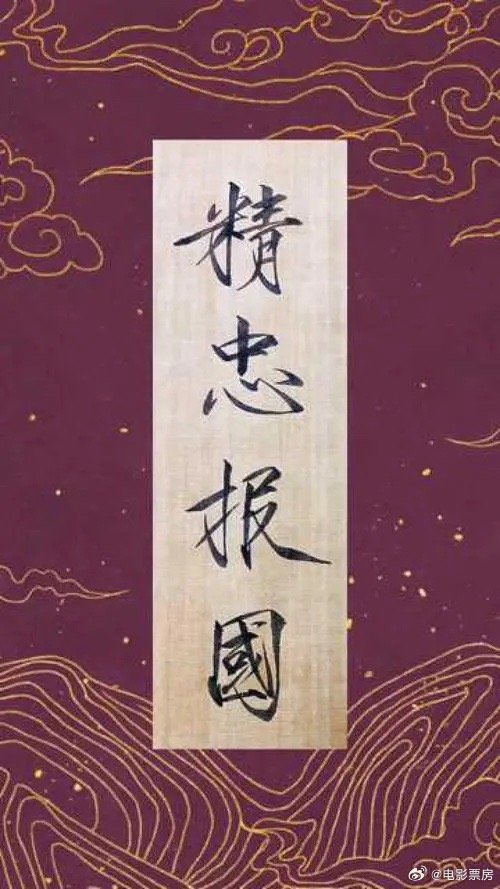 精忠报國
@电影票房